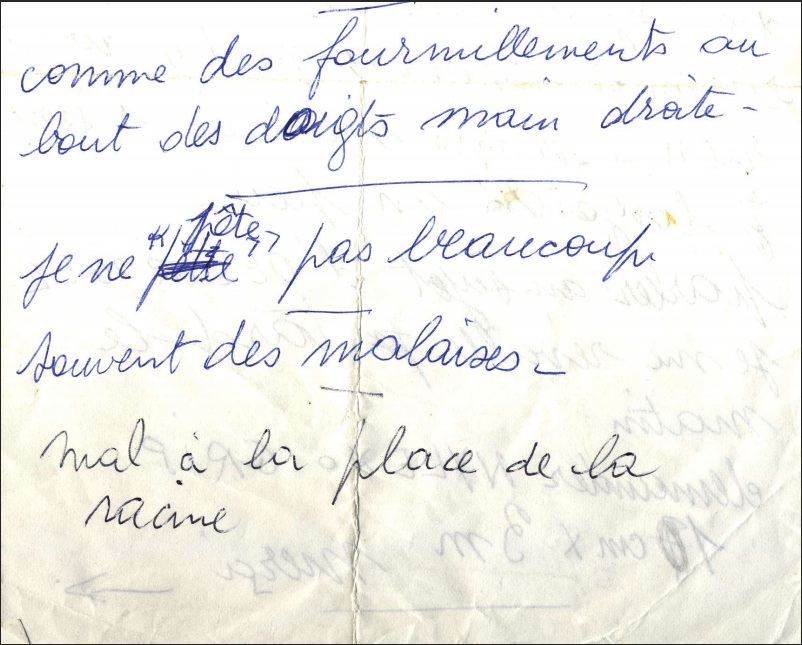 comme des fourmillements au
bout des doigts main droite -
je ne « pête » pas beaucoup
souvent des malaises -
mal à la place de la
racine